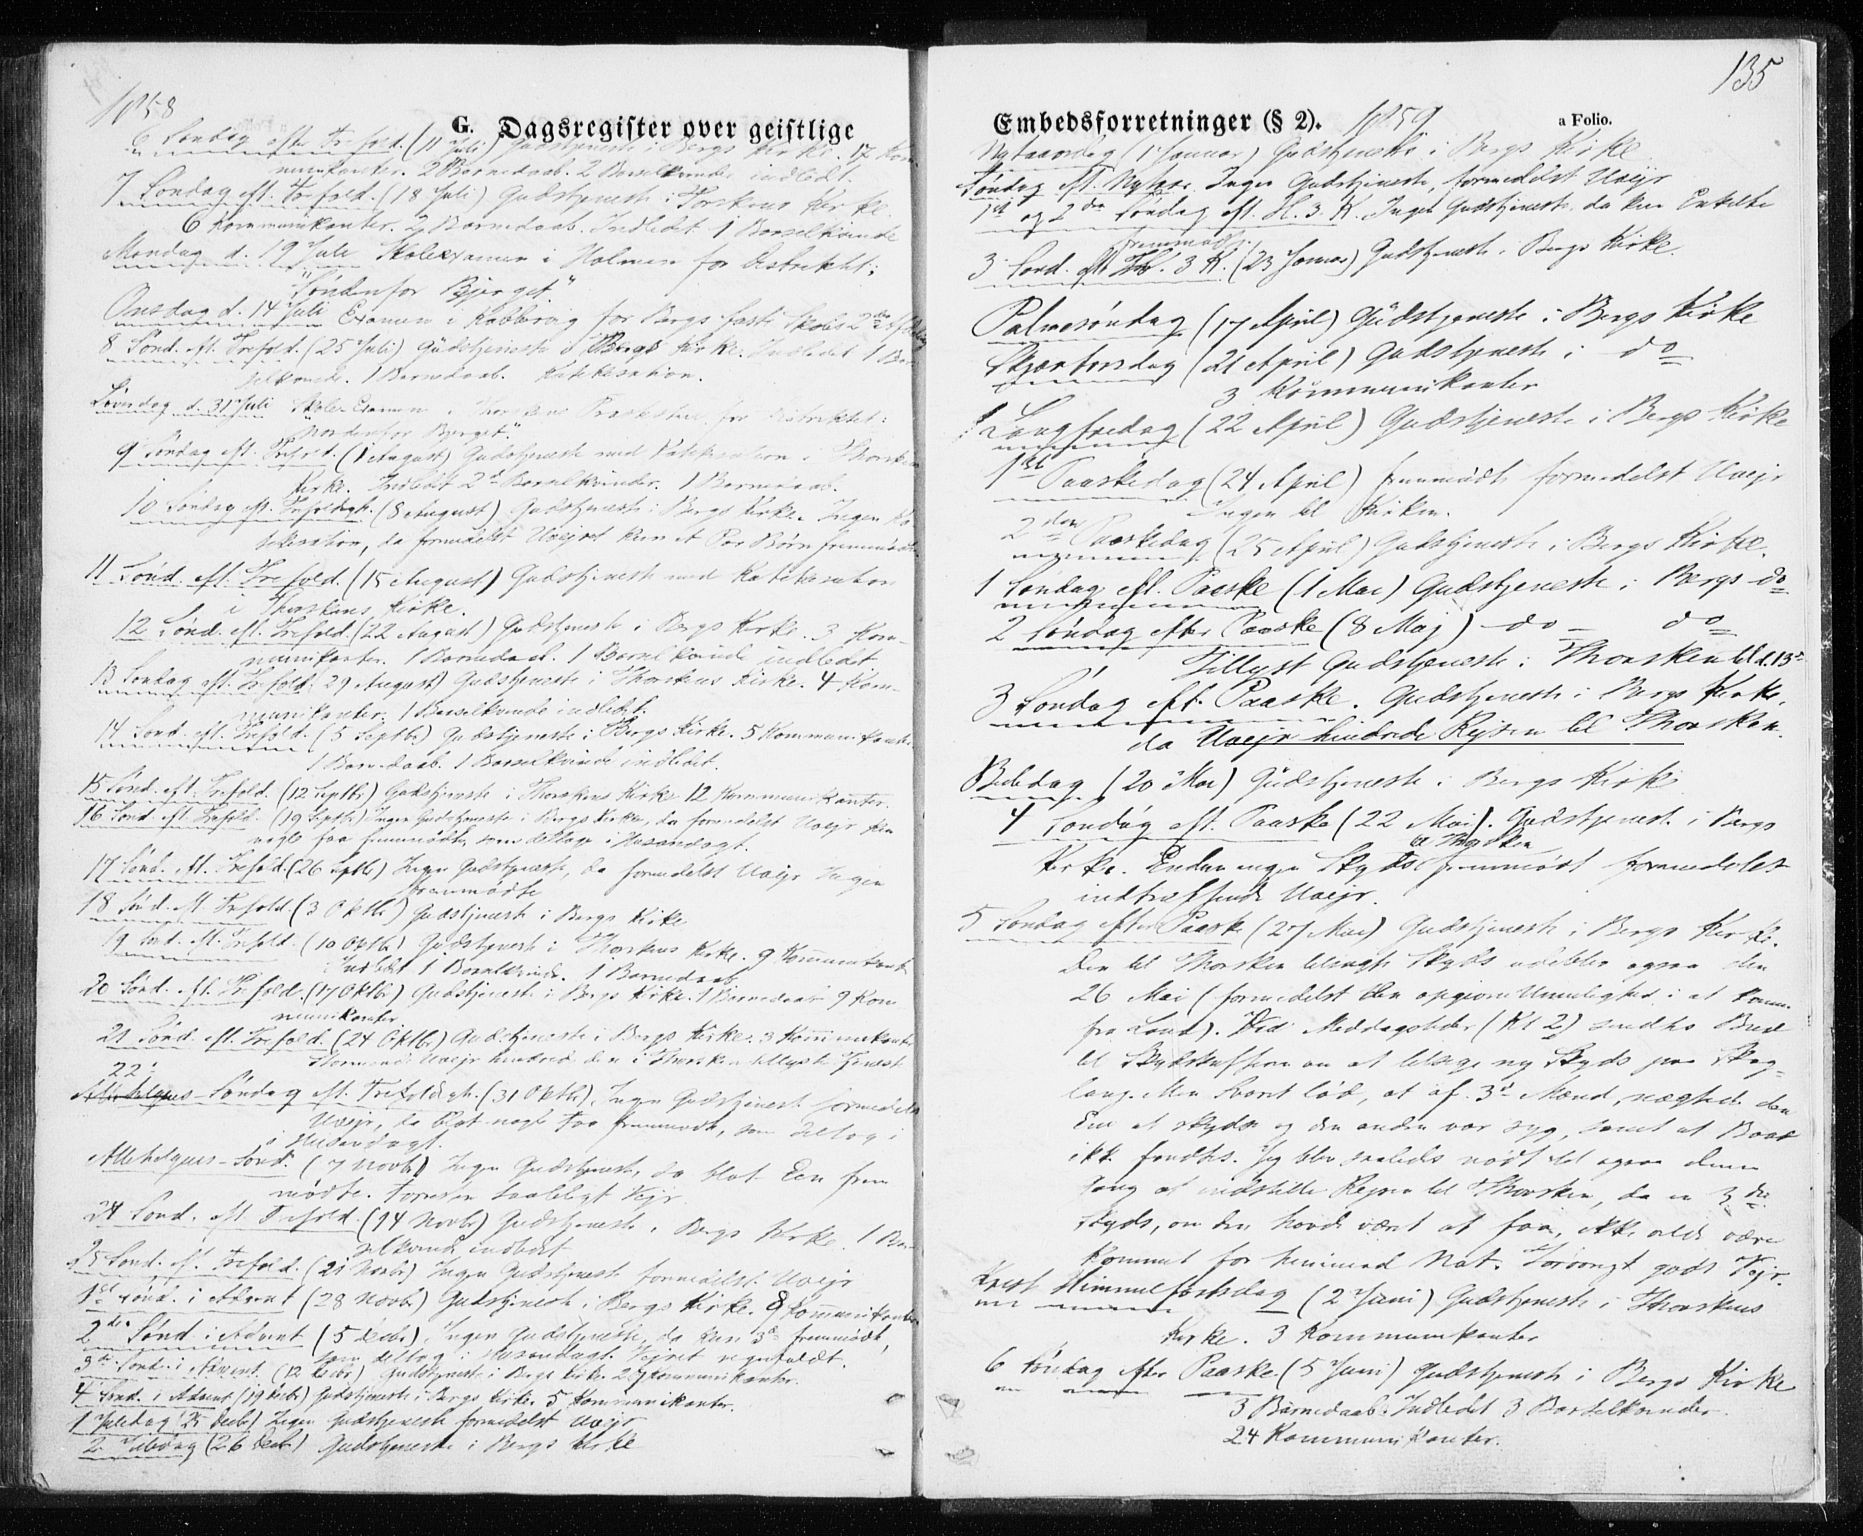 1858
G. Dagsregister over geistlige
6 Søndag efter Trefold. (11 Juli) Gudstjeneste i Bergs Kirke. 17 Kom-
munikanter. 2 Barnedaab. 2 Barselkvinder indledt.
7 Søndag eft. Trefold. (18 Juli) Gudstjeneste i Torskens Kirke
6 Kommunikanter. 2 Barnedaab. Indledet 1 Barselkvinde
Mandag d. 19 Juli Skoleexamen i Holmen for Distriktet:
"Søndenfor Bjerget."
Onsdag d. 14 Juli Examen i Kobbevåg for Bergs faste Skoles 2den Afdeling
8 Sønd. eft. Trefold. (25 Juli) Gudstjeneste i Bergs Kirke. Indledet 1 Bar-
selkvinde. 1 Barnedaab. Katekisation.
Løverdag d. 31 Juli Skole-Examen i Thorskens for Distriktet:
"Nordenfor Bjerget."
9 Søndag eft. Trefold. (1 August) Gudstjeneste med Katekisation i Thorskens
Kirke. Indledt 2 Barselkvinder. 1 Barnedaab.
10 Søndag eft. Trefoldigh. (8 August) Gudstjeneste i Bergs Kirke. Ingen Ka-
tekisation, da formedelst Uveiret kun et Par Børn fremmødte
11 Sønd. eft. Trefold. (15 August) Gudstjeneste med Katekisation
i Thorskens Kirke.
12 Sønd. eft. Trefold. (22 August) Gudstjeneste i Bergs Kirke. 3 Kom-
munikanter. 1 Barnedaab. 1 Barselkvinde indledet.
13 Søndag eft. Trefold. 29 August) Gudstjeneste i Thorskens Kirke. 4 Kom-
munikanter. 1 Barselkvinde indledet.
14 Sønd. eft. Trefold. (5 Septbr) Gudstjeneste i Bergs Kirke. 5 Kommunikanter
1 Barnedaab. 1 Barselkvinde indledet.
15 Sønd. eft. Trefold. (12 Septbr) Gudstjeneste i Thorskens Kirke 12 Kommunikanter.
16 Sønd. eft. Trefold. (19 Septbr) Ingen Gudstjeneste i Bergs Kirke, da formedelst Uvejr kun
nogle faa fremmødte, som deltoge i Husandagt.
17 Sønd. eft. Trefold. (26 Septbr) Ingen Gudstjeneste, da formedelst Uvejr Ingen
fremmødte
18 Sønd. eft. Trefold. (3 Oktbr) Gudstjeneste i Bergs Kirke
19 Sønd. eft. Trefold. (10 Oktbr) Gudstjeneste i Thorskens Kirke. 9 Kommunikanter
Indledet 1 Barselkvinde. 1 Barnedaab
20 Sønd. eft. Trefold. (17 Oktbr) Gudstjeneste i Bergs Kirke. 1 Barnedaab 9 Kom-
munikanter
21 Sønd. eft. Trefold. (24 Oktbr) Gudstjeneste i Bergs Kirke. 3 Kommunikanter
Uvejr hindred den i Thorsken tillyste Tjeneste
22
Allehelgens - Søndag eft. Trefoldigh. (31 Oktbr). Ingen Gudstjeneste formedelst
Uvejr, da blot nogle Faa fremmødte, som deltog i
Husandagt.
Allehelgens-Sønd. (7 Novbr) Ingen Gudstjeneste, da blot Een frem-
mødte. Vejr
24 Sønd. eft. Trefold. (14 Novbr) Gudstjeneste i Bergs Kirke. 1 Bar-
selkvinde indledet
25 Sønd. eft. Trefold. (21 Novbr) Ingen Gudstjeneste formedelst Uvejr
1ste Sønd. i Advent (28 Novbr) Gudstjeneste i Bergs Kirke. 8 Kommunikanter
2den Sønd. i Advent (5 Decbr). Ingen Gudstjeneste, da kun 3de fremmødte,
som deltog i Husandagt. Vejret regnfuldt.
3die Sønd. i Advent. (12 Decbr) Gudstjeneste i Bergs Kirke. 2 Kommunikanter.
4 Sønd. i Advent (19 Decbr) Gudstjeneste i Bergs Kirke 5 Kommunikanter.
1 Juledag (25 Decbr) Ingen Gudstjeneste formedelst Uvejr
2 Juledag (26 Decbr) Gudstjeneste i Bergs Kirke
135
Embedsforretninger (§ 2). 1859
a Folio.
Nytaarsdag (1 Januar) Gudstjeneste i Bergs Kirke
Søndag eft. Nytaar. Ingen Gudstjeneste, formedelst Uvejr
1ste og 2den Søndag eft. H. 3 K. Ingen Gudstjeneste da kun Enkelte
fremmødte
3 Sønd. eft. H. 3 K. (23 Januar) Gudstjeneste i Bergs Kirke.
Palmesøndag (17 April) Gudstjeneste i Bergs Kirke
Skjærtorsdag (21 April) Gudstjeneste i do
3 Kommunikanter
Langfredag (22 April) Gudstjeneste i Bergs Kirke
1ste Paaskedag (24 April) fremmødte formedelst Uvejr
Ingen til Kirken.
2den Paaskedag (25 April) Gudstjeneste i Bergs Kirke.
1 Søndag eft. Paaske (1 Mai) Gudstjeneste i Bergs do
2 Søndag efter Paaske (8 Maj) - do - do
Tillyst Gudstjeneste i Thorsken til d. 15de
3 Søndag eft. Paaske. Gudstjeneste i Bergs Kirke,
da Uvejr hindrede Rejsen til Thorsken.
Bededag (20 Mai) Gudstjeneste i Bergs Kirke
4 Søndag eft. Paaske (22 Mai). Gudstjeneste i Bergs
til Thorsken
Kirke. Endnu ingen Skyds fremmødt formedelst
indtræffende Uvejr.
5 Søndag efter Paaske (27 Mai) Gudstjeneste i Bergs Kirke.
Den til Thorsken tilsagte Skyds udeblev ogsaa den
26 Mai (formedelst den opgivne Umulighed i at komme
fra Land). Ved Middagstider (Kl 2) sendtes Bud
til Skydsskafferen om at tilsige ny Skyds paa Skag-
lang. Men Svaret lød, at af 3de Mænd, nægtede den
Ene at skydse og den anden var syg, samt at Baad
ikke fandtes. Jeg blev saaledes nødt til ogsaa denne
Gang at indstille Rejsen til Thorsken, da en 3die
Skyds, om den havde været at faa, ikke vilde være
kommet før henimod Nat. Forøvrigt godt Vejr.
Krist Himmelfartsdag (2 Juni) Gudstjeneste i Thorskens
Kirke. 3 Kommunikanter
6 Søndag efter Paaske (5 Juni) Gudstjeneste i Bergs Kirke
3 Barnedaab. Indledet 3 Barselkvinder.
24 Kommunikanter.